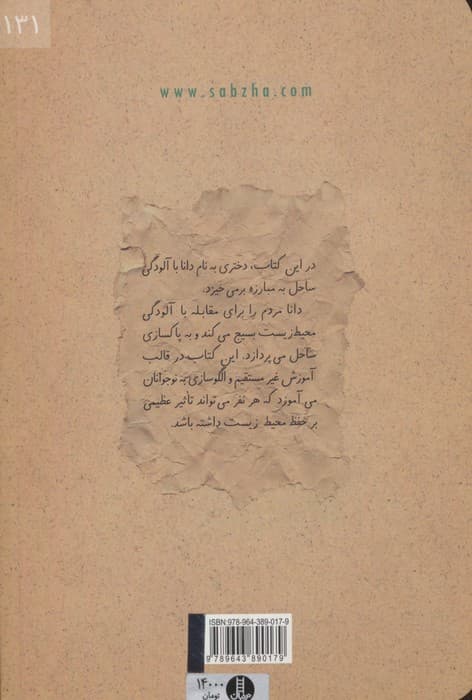 ۱۳۱
www.sabzha.com
در این کتاب، دختری به نام دانا با آلودگی
ساحل به مبارزه برمی خیزد.
دانا مردم را برای مقابله با آلودگی
محیط‌زیست بسیج می‌کند و به پاکسازی
ساحل می‌پردازد. این کتاب، در قالب
آموزش غیر مستقیم و الگوسازی به نوجوانان
می آموزد که هر نفر می‌تواند تأثیر عظیمی
بر حفظ محیط زیست داشته باشد.
ISBN:978-964-389-017-9
9 789643 890179
۱۴۰۰۰
تومان